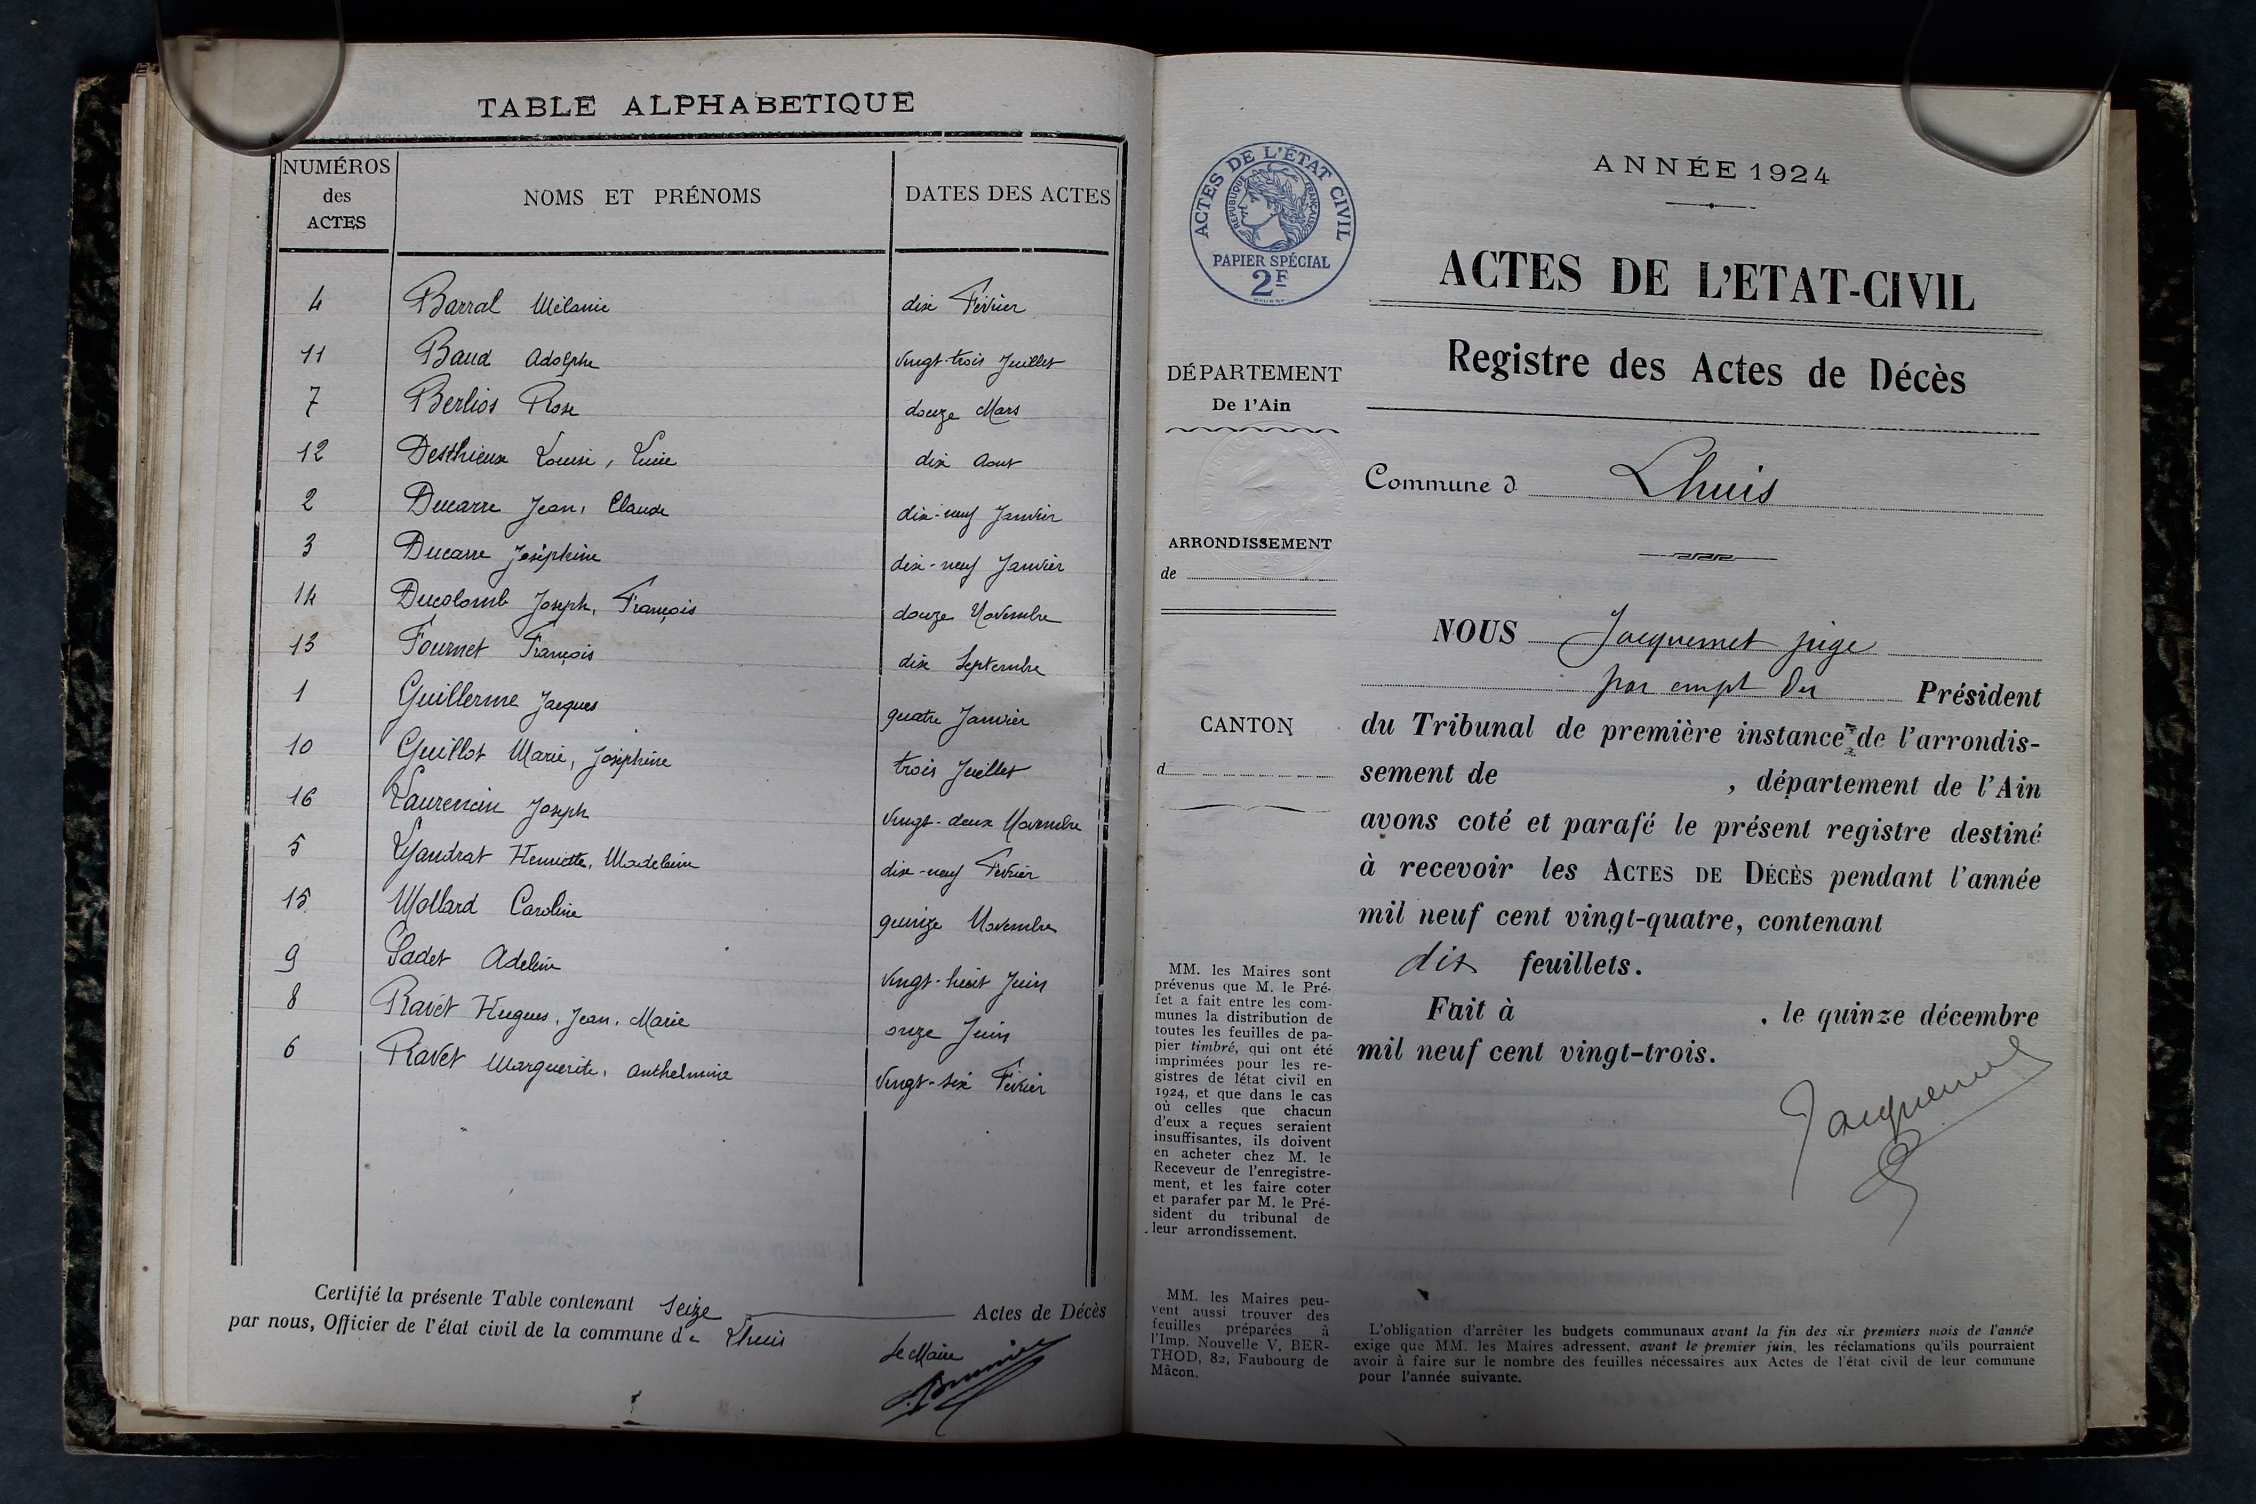 TABLE ALPHABETIQUE
NUMÉROS des ACTES NOMS ET PRÉNOMS DATES DES ACTES
4 Barral Mélanie dix Février
11 Baud Adolphe vingt-trois Juillet
7 Berlios Rose douze Mars
12 Desthieux Louise, Lucie dix Aout
2 Ducarre Jean, Claude dix-neuf Janvier
3 Ducarre Joséphine dix-neuf Janvier
14 Ducolomb Joseph, François douze Novembre
13 Fournet François dix Septembre
1 Guillerme Jacques quatre Janvier
10 Guillot Marie, Joséphine trois Juillet
16 Laurencin Joseph vingt-deux Novembre
5 Lyaudrat Henriette, Madeleine dix-neuf Février
15 Mollard Caroline quinze Novembre
9 Sadet Adeline vingt-huit Juin
8 Ravet Hugues, Jean, Marie onze Juin
6 Ravet Marguerite, Anthelmine vingt-six Février
Certifié la présente Table contenant seize Actes de Décès
par nous, Officier de l'état civil de la commune de Lhuis
Le Maire
ACTES DE L'ÉTAT CIVIL
RÉPUBLIQUE FRANÇAISE
PAPIER SPÉCIAL
2F
DÉPARTEMENT
De l'Ain
ARRONDISSEMENT
de
CANTON
d
MM. les Maires sont
prévenus que M. le Pré-
fet a fait entre les com-
munes la distribution de
toutes les feuilles de pa-
pier timbré, qui ont été
imprimées pour les re-
gistres de létat civil en
1924, et que dans le cas
où celles que chacun
d'eux a reçues seraient
insuffisantes, ils doivent
en acheter chez M. le
Receveur de l'enregistre-
ment, et les faire coter
et parafer par M. le Pré-
sident du tribunal de
leur arrondissement.
MM. les Maires peu-
vent aussi trouver des
feuilles préparées à
l'Imp. Nouvelle V. BER-
THOD, 82, Faubourg de
Mâcon.
ANNÉE 1924
ACTES DE L'ETAT-CIVIL
Registre des Actes de Décès
Commune d Lhuis
NOUS Jacquemet juge
par empt du Président
du Tribunal de première instance de l'arrondis-
sement de , département de l'Ain
avons coté et parafé le présent registre destiné
à recevoir les ACTES DE DÉCÈS pendant l'année
mil neuf cent vingt-quatre, contenant
dix feuillets.
Fait à , le quinze décembre
mil neuf cent vingt-trois.
Jacquemet
L'obligation d'arrêter les budgets communaux avant la fin des six premiers mois de l'année
exige que MM. les Maires adressent, avant le premier juin, les réclamations qu'ils pourraient
avoir à faire sur le nombre des feuilles nécessaires aux Actes de l'état civil de leur commune
pour l'année suivante.